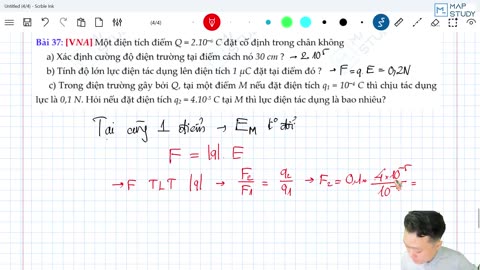 Untitled (4/4) - Scrble Ink
(4/4)
MAP STUDY
Bài 37: [VNA] Một điện tích điểm Q = 2.10⁻⁶ C đặt cố định trong chân không
a) Xác định cường độ điện trường tại điểm cách nó 30 cm ? → 2.10⁵
b) Tính độ lớn lực điện tác dụng lên điện tích 1 μC đặt tại điểm đó ? → F = q.E = 0,2N
c) Trong điện trường gây bởi Q, tại một điểm M nếu đặt điện tích q₁ = 10⁻⁴ C thì chịu tác dụng
lực là 0,1 N. Hỏi nếu đặt điện tích q₂ = 4.10⁻⁵ C tại M thì lực điện tác dụng là bao nhiêu?
Tại cùng 1 điểm → E_M
F = |q| E
→ F TLT |q| → F₂/F₁ = q₂/q₁ → F₂ = 0,1 × 4×10⁻⁵/10⁻⁵ =